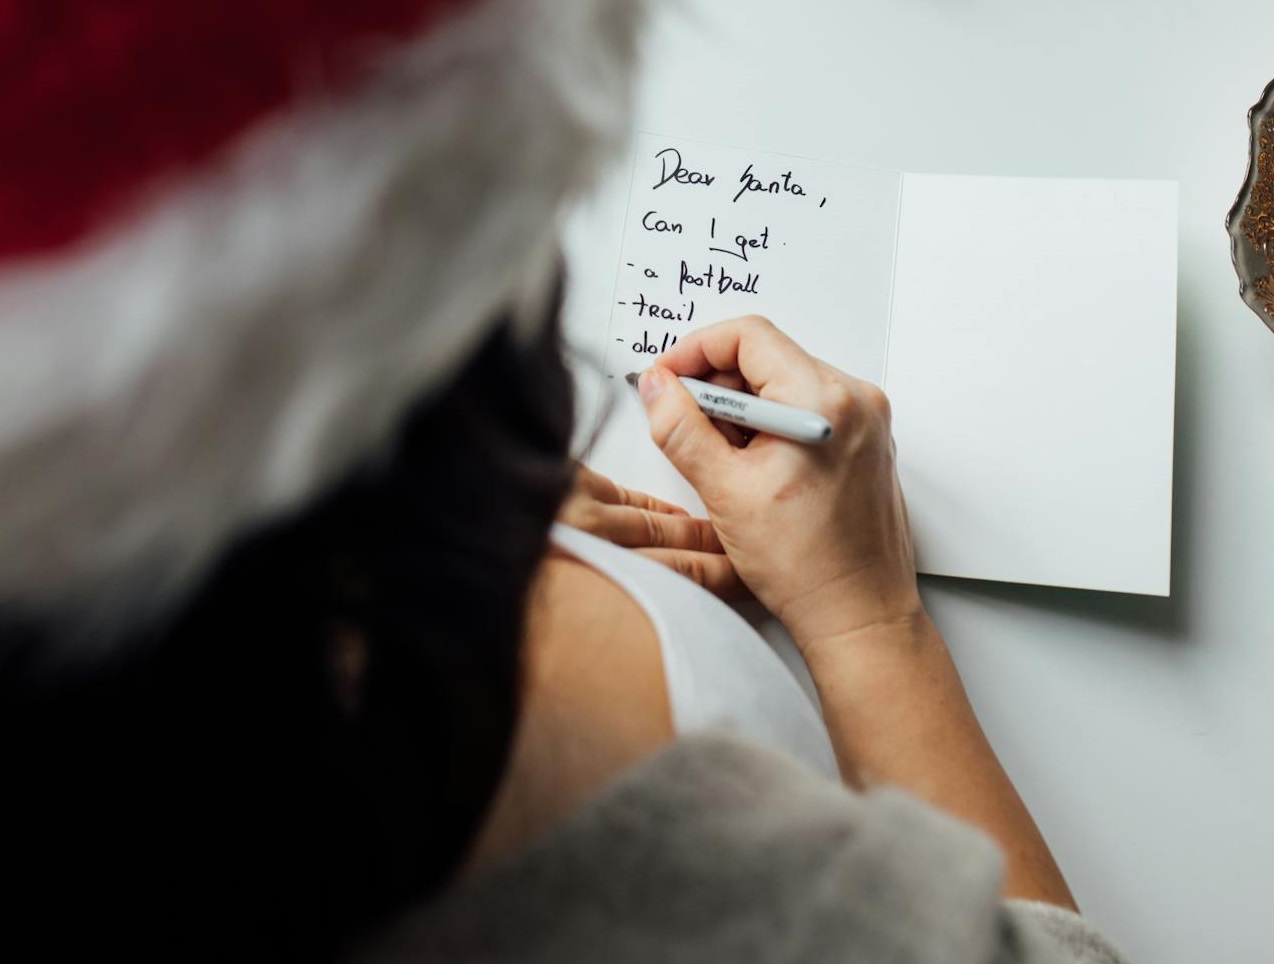 Dear Santa,
Can I get
- a football
- trail
- doll
-